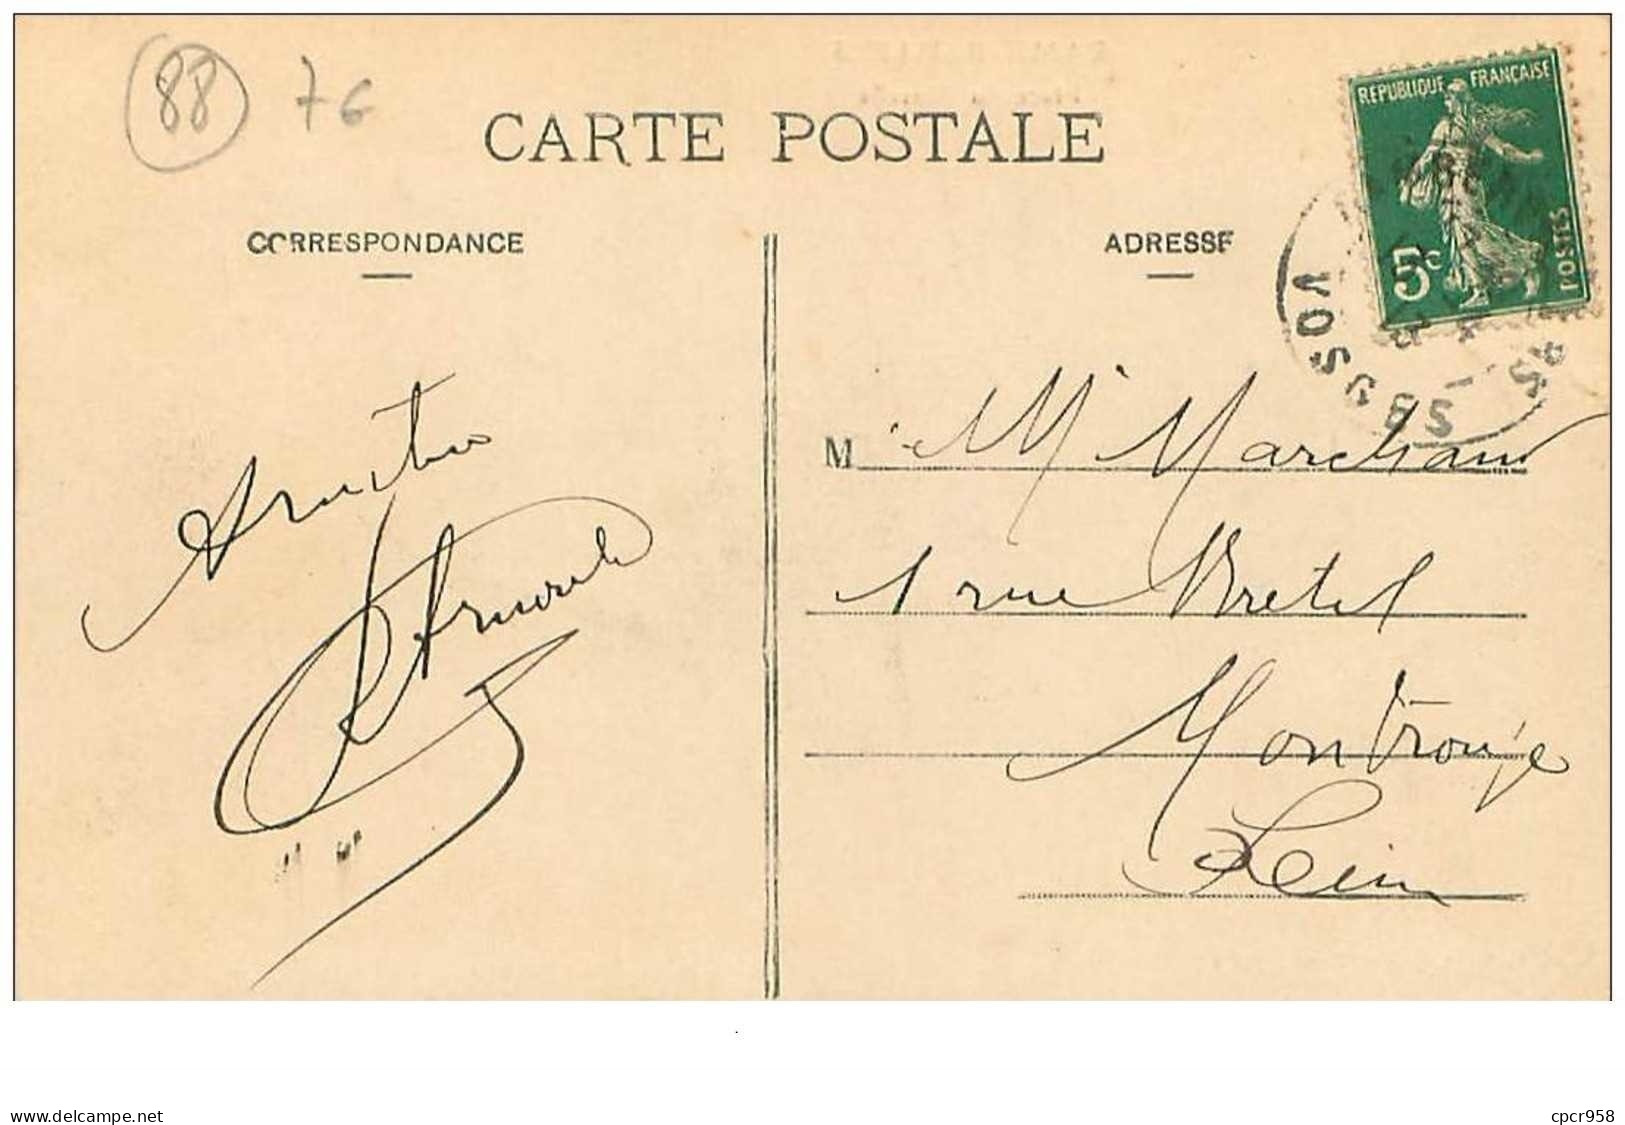 88 76
CARTE POSTALE
REPUBLIQUE FRANCAISE
5c POSTES
CORRESPONDANCE
ADRESSE
VOSGES
M Mr Marchand
1 rue
Montrouge
Seine
www.delcampe.net
cpcr958